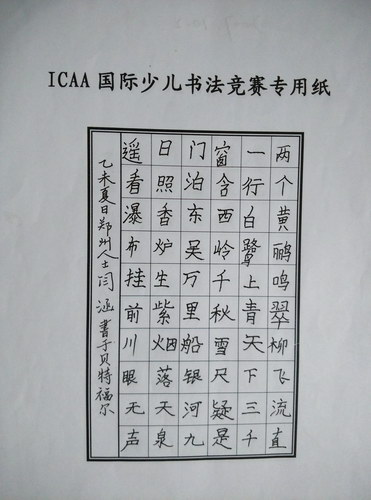 ICAA国际少儿书法竞赛专用纸
两个黄鹂鸣翠柳飞流直
一行白鹭上青天下三千
窗含西岭千秋雪尺疑是
门泊东吴万里船银河九
日照香炉生紫烟落天泉
遥看瀑布挂前川眼无声
乙未夏日郑州人士闫涵書于贝特福尔